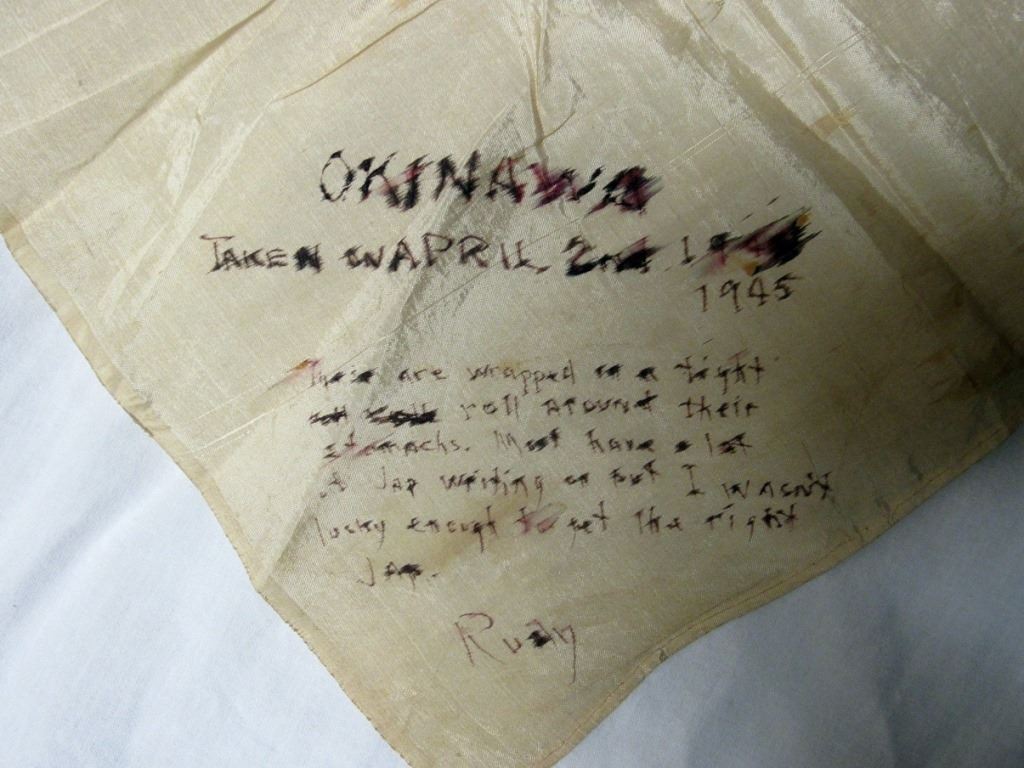 OKINAWA
TAKEN ON APRIL 2nd 19
1945
are wrapped in a tight
roll around their
stomachs. Most have a lot
A Jap writing on but I wasn't
lucky enough to get the right
Jap.
Rudy